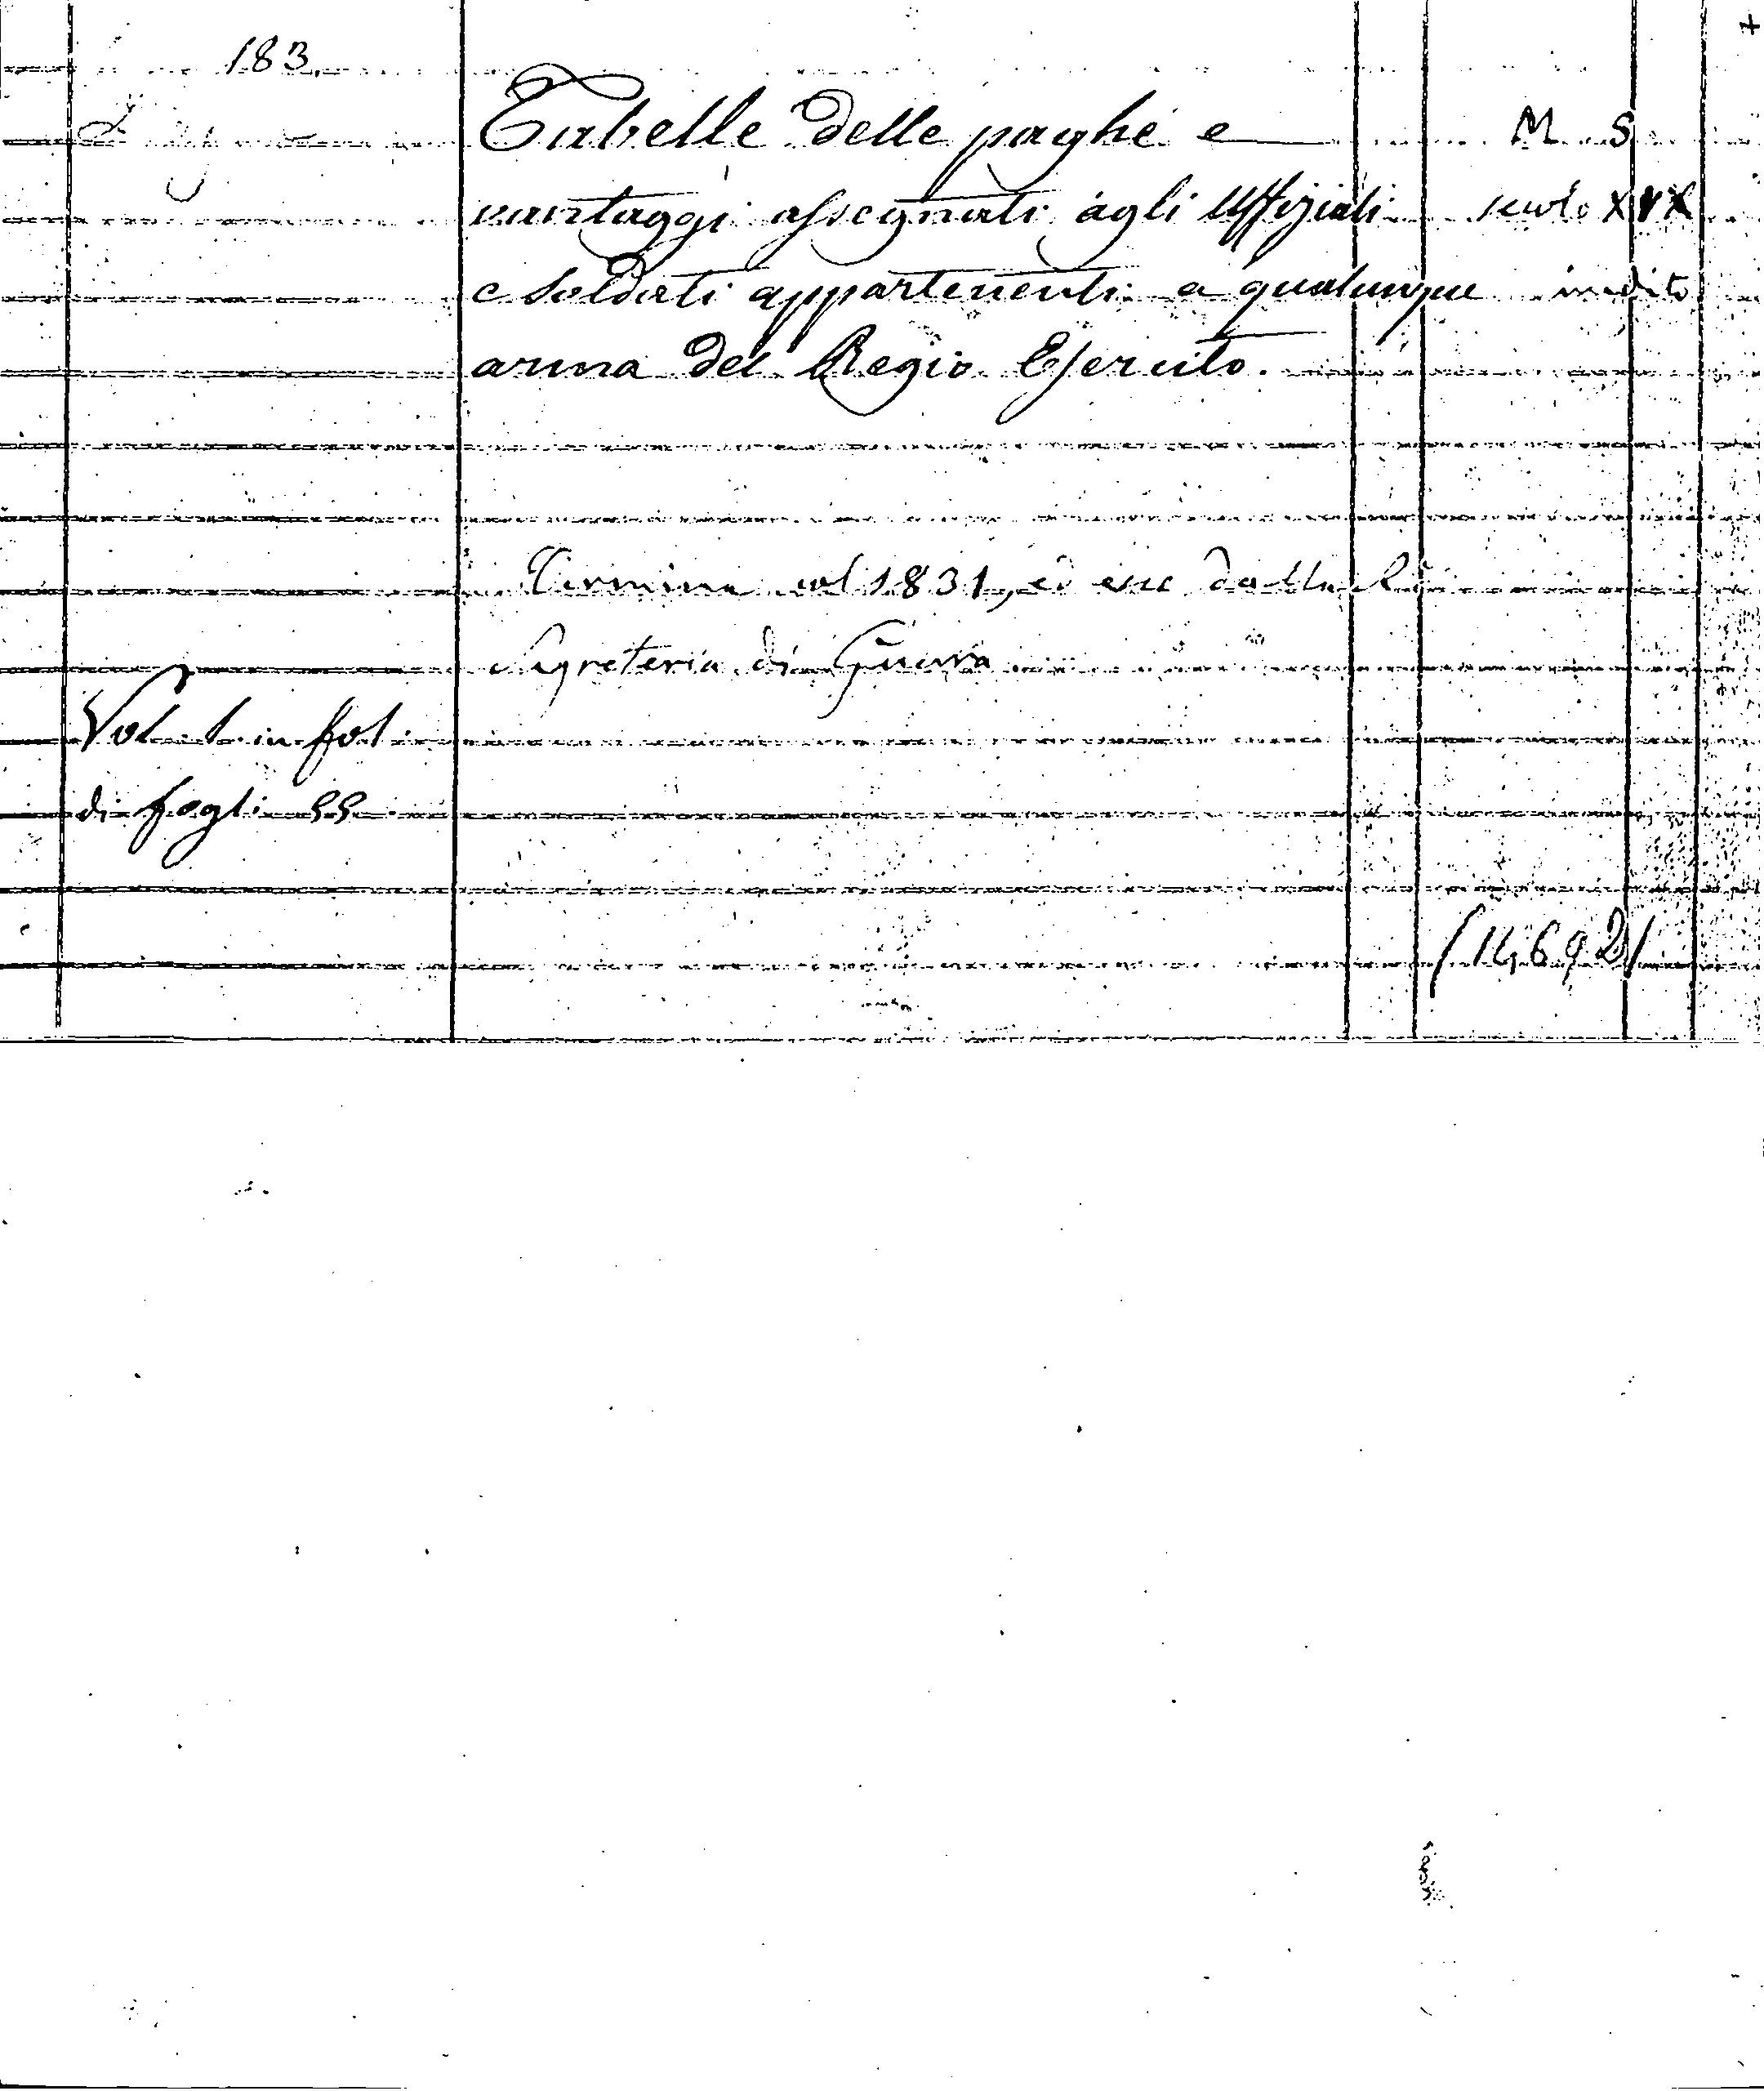 183
Tabelle delle paghe e M. S.
vantaggi assegnati agli Uffiziali secolo XIX
e Soldati appartenenti a qualunque inedito
arma del Regio Esercito.
Termina col 1831, ed esce dalla R.
Segreteria di Guerra
Vol. 1. in fol.
di fogli 55.